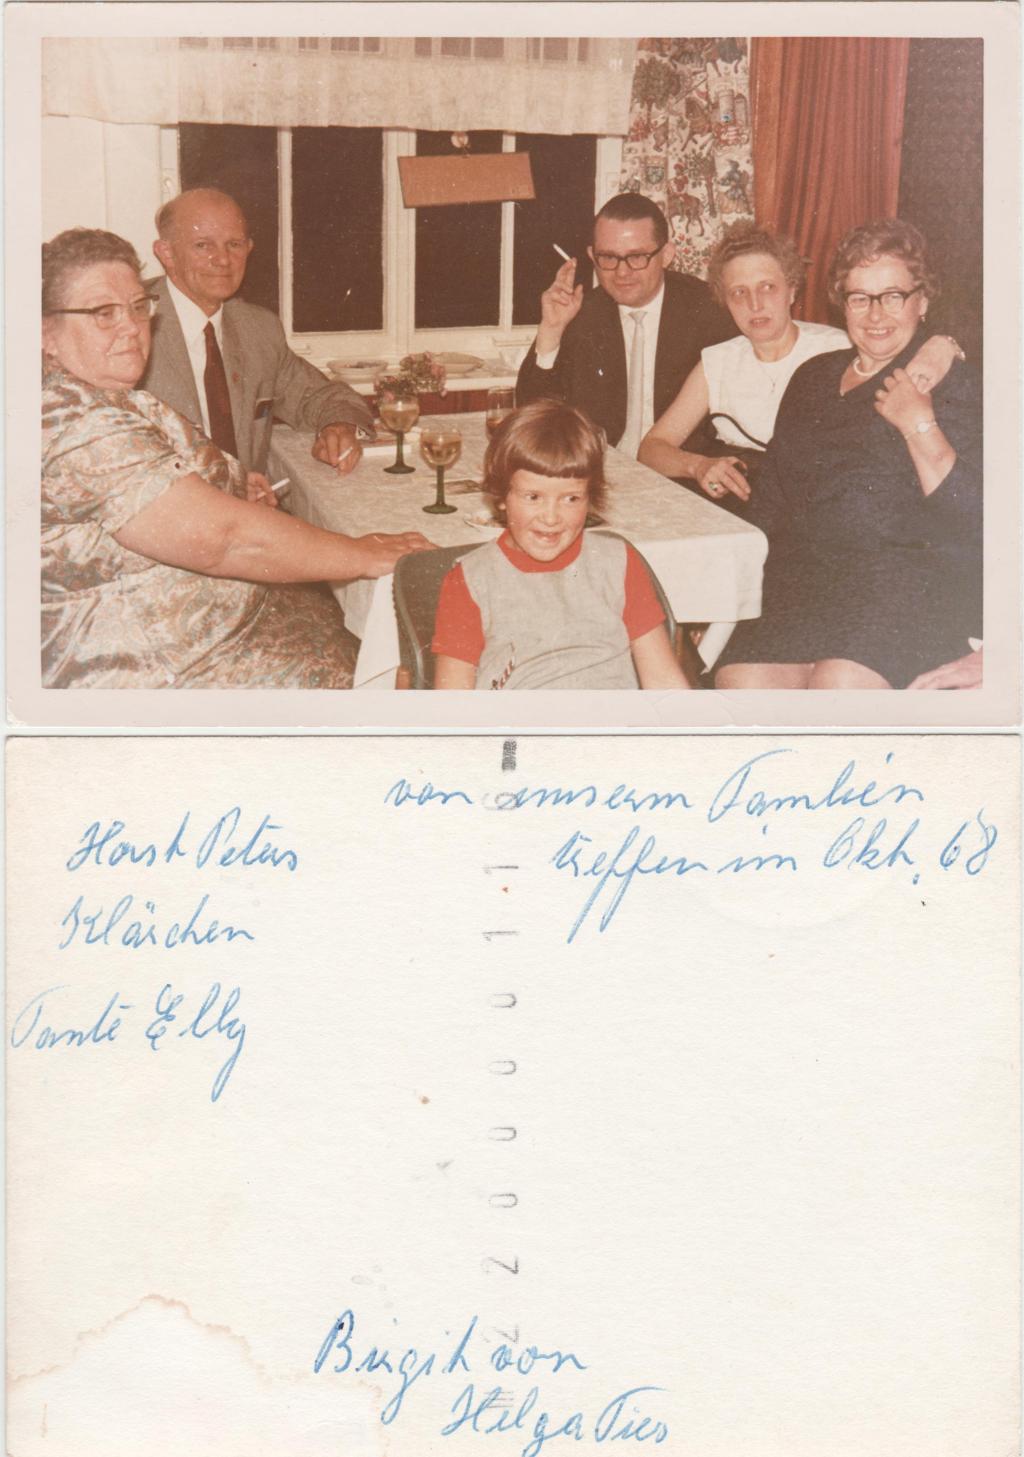 von unserm Familien
treffen im Okt. 68
Horst Peters
Klärchen
Tante Elly
Birgit von
Helga Ties